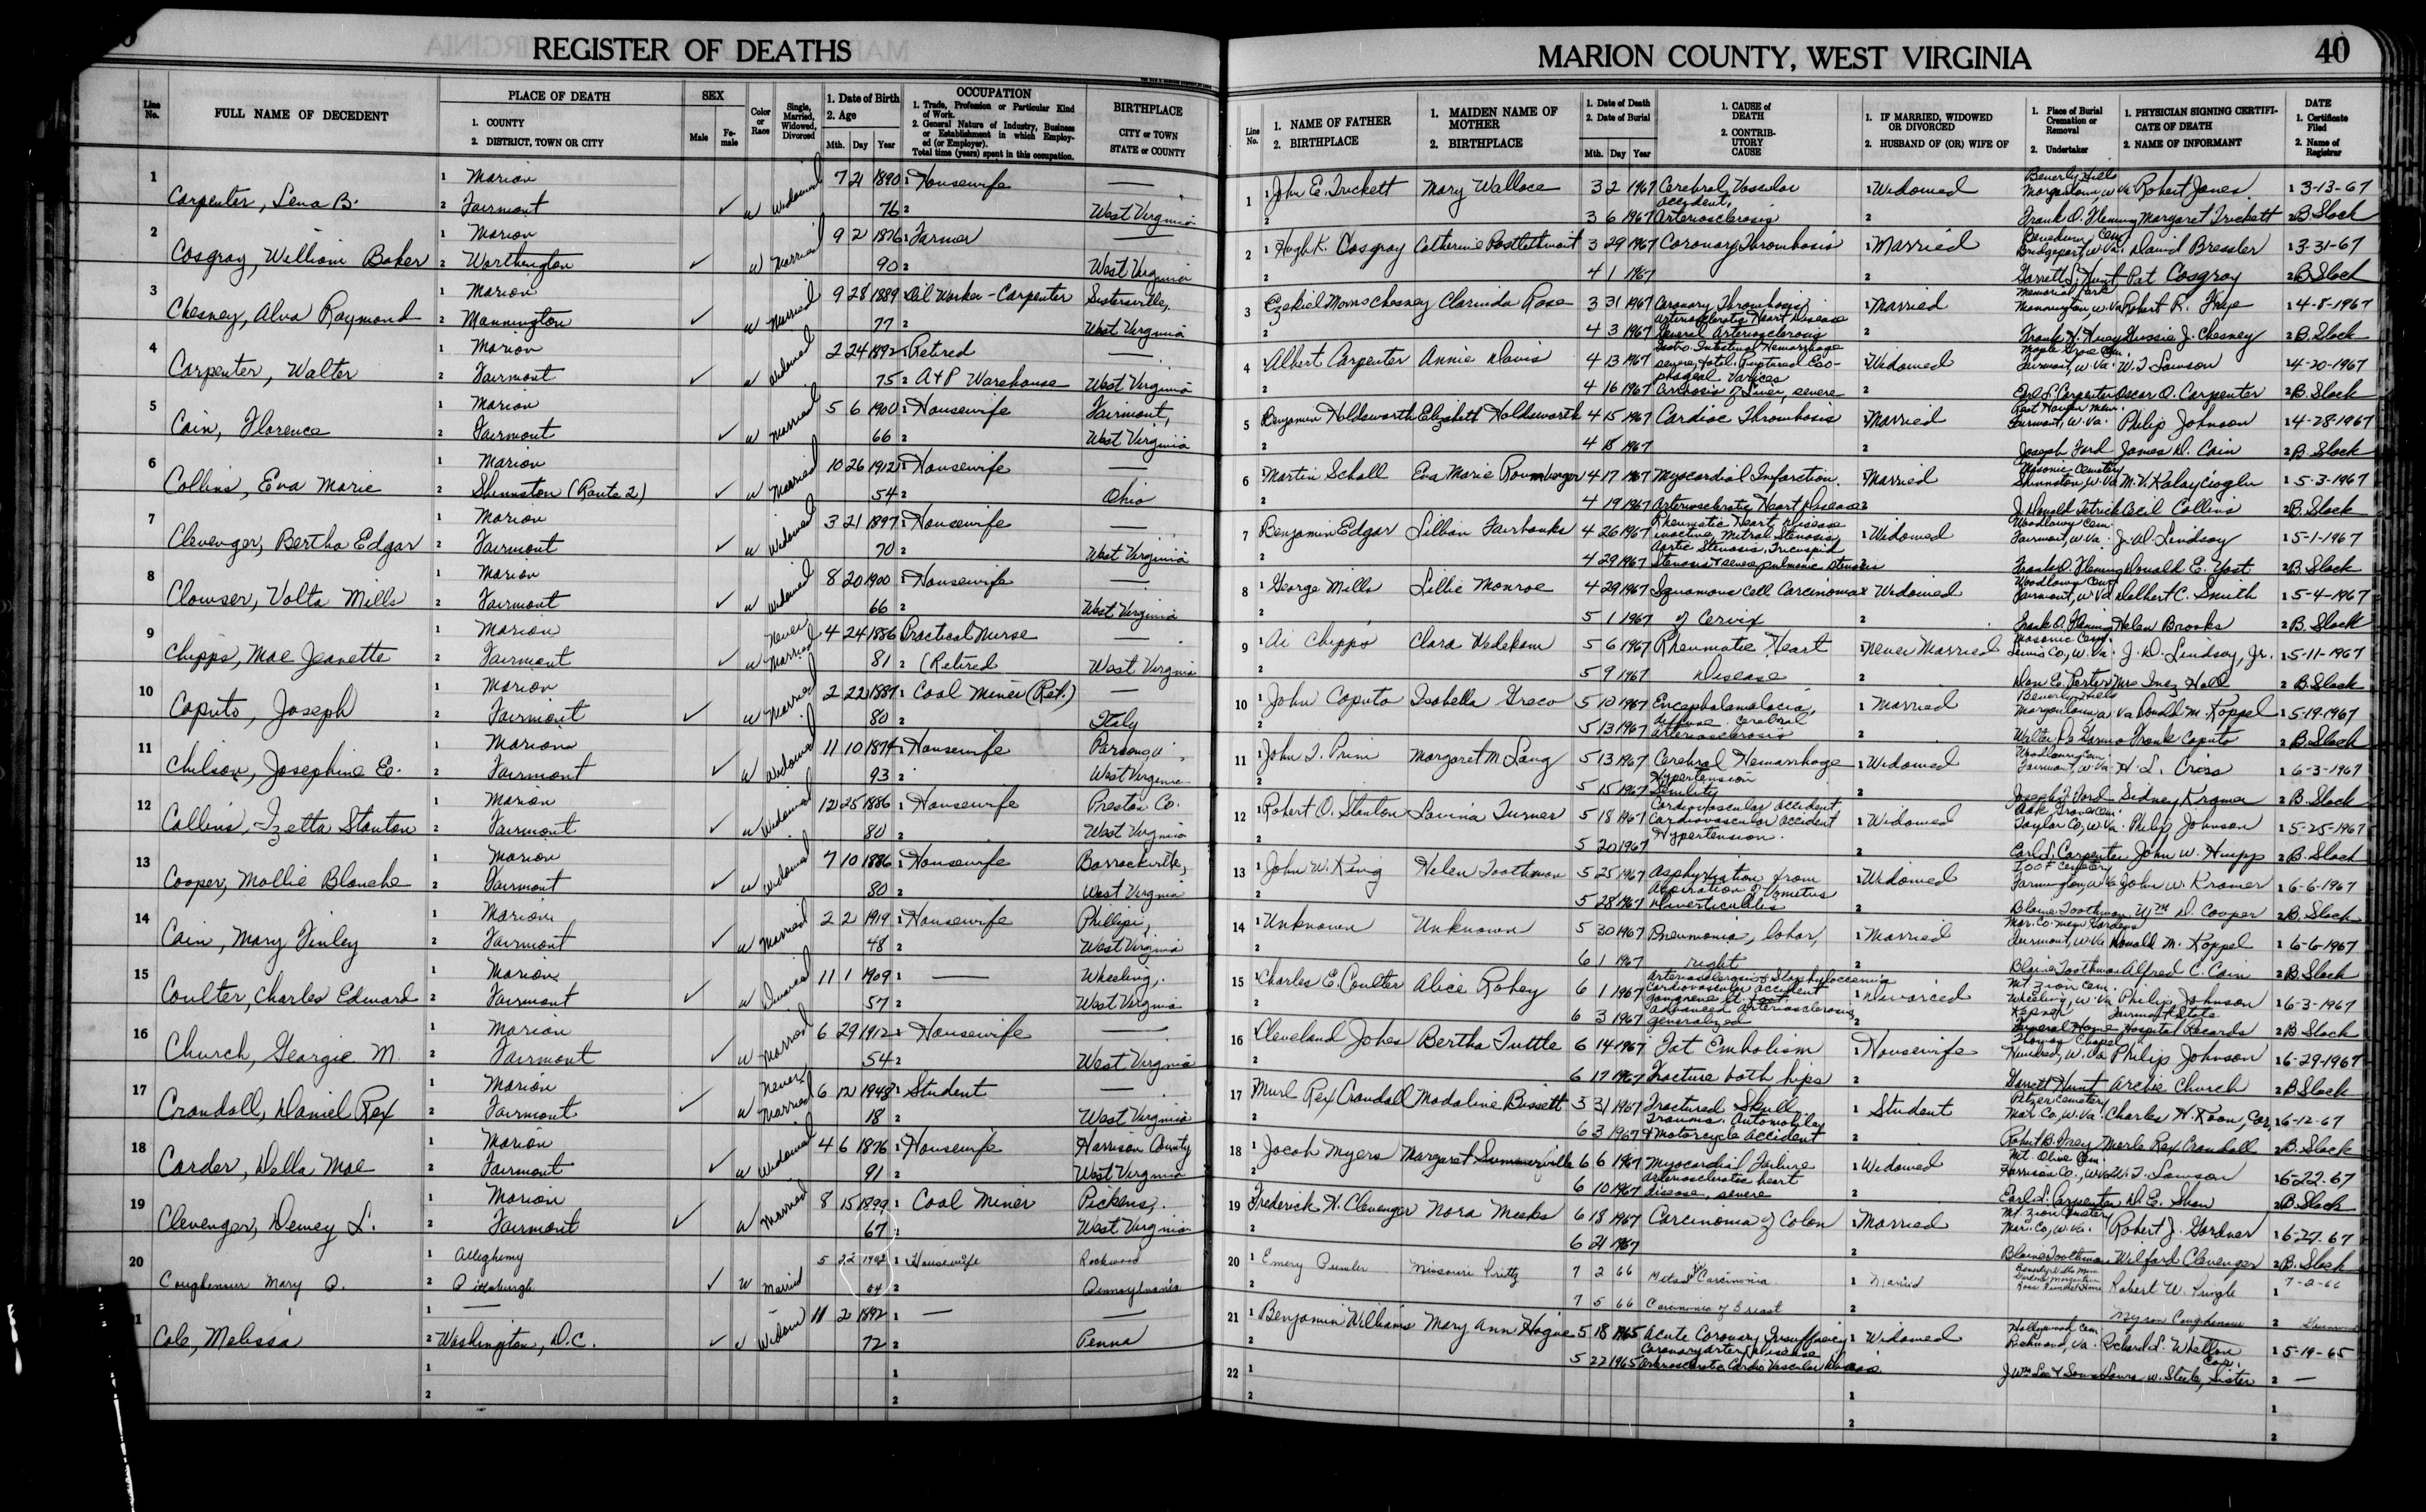 REGISTER OF DEATHS
MARION COUNTY, WEST VIRGINIA 40
Line No. FULL NAME OF DECEDENT PLACE OF DEATH 1. COUNTY 2. DISTRICT, TOWN OR CITY SEX Male Female Color or Race Single, Married, Widowed, Divorced 1. Date of Birth 2. Age Mth. Day Year OCCUPATION 1. Trade, Profession or Particular Kind of Work. 2. General Nature of Industry, Business or Establishment in which Employed (or Employer). Total time (years) spent in this occupation. BIRTHPLACE CITY or TOWN STATE or COUNTY
Line No. 1. NAME OF FATHER 2. BIRTHPLACE 1. MAIDEN NAME OF MOTHER 2. BIRTHPLACE 1. Date of Death 2. Date of Burial Mth. Day Year 1. CAUSE of DEATH 2. CONTRIBUTORY CAUSE 1. IF MARRIED, WIDOWED OR DIVORCED 2. HUSBAND OF (OR) WIFE OF 1. Place of Burial Cremation or Removal 2. Undertaker 1. PHYSICIAN SIGNING CERTIFICATE OF DEATH 2. NAME OF INFORMANT DATE 1. Certificate Filed 2. Name of Registrar
1 Carpenter, Lena B. 1 Marion 2 Fairmont ✓ W Widowed 7 21 1890 76 1 Housewife 2 — West Virginia
2 Cosgray, William Baker 1 Marion 2 Worthington ✓ W Married 9 2 1876 90 1 Farmer 2 — West Virginia
3 Chesney, Alva Raymond 1 Marion 2 Mannington ✓ W Married 9 28 1889 77 1 Oil Worker - Carpenter 2 Sistersville, West Virginia
4 Carpenter, Walter 1 Marion 2 Fairmont ✓ W Widowed 2 24 1892 75 1 Retired 2 A+P Warehouse — West Virginia
5 Cain, Florence 1 Marion 2 Fairmont ✓ W Married 5 6 1900 66 1 Housewife 2 Fairmont, West Virginia
6 Collins, Eva Marie 1 Marion 2 Shinnston (Route 2) ✓ W Married 10 26 1912 54 1 Housewife 2 — Ohio
7 Clevenger, Bertha Edgar 1 Marion 2 Fairmont ✓ W Widowed 3 21 1897 70 1 Housewife 2 — West Virginia
8 Clowser, Volta Mills 1 Marion 2 Fairmont ✓ W Widowed 8 20 1900 66 1 Housewife 2 — West Virginia
9 Chipps, Mae Jeanette 1 Marion 2 Fairmont ✓ W Never Married 4 24 1886 81 Practical Nurse 2 (Retired — West Virginia
10 Caputo, Joseph 1 Marion 2 Fairmont ✓ W Married 2 22 1887 80 1 Coal Miner (Ret.) 2 — Italy
11 Chilson, Josephine E. 1 Marion 2 Fairmont ✓ W Widowed 11 10 1874 93 1 Housewife 2 West Virginia
12 Collins, Izetta Stanton 1 Marion 2 Fairmont ✓ W Widowed 12 25 1886 80 1 Housewife 2 Preston Co. West Virginia
13 Cooper, Mollie Blanche 1 Marion 2 Fairmont ✓ W Widowed 7 10 1886 80 1 Housewife 2 Barrackville, West Virginia
14 Cain, Mary Finley 1 Marion 2 Fairmont ✓ W Married 2 2 1919 48 1 Housewife 2 Phillipi, West Virginia
15 Coulter, Charles Edward 1 Marion 2 Fairmont ✓ W Divorced 11 1 1909 57 1 — 2 Wheeling, West Virginia
16 Church, Georgie M. 1 Marion 2 Fairmont ✓ W Married 6 29 1912 54 1 Housewife 2 — West Virginia
17 Crandall, Daniel Rex 1 Marion 2 Fairmont ✓ W Never Married 6 12 1948 18 1 Student 2 — West Virginia
18 Carder, Della Mae 1 Marion 2 Fairmont ✓ W Widowed 4 6 1876 91 1 Housewife 2 Harrison County West Virginia
19 Clevenger, Dewey L. 1 Marion 2 Fairmont ✓ W Married 8 15 1899 67 1 Coal Miner 2 Pickens, West Virginia
20 Coughenour Mary 1 Allegheny 2 Pittsburgh ✓ W Married 5 22 64 1 Housewife 2 Rockwood Pennsylvania
1 Cole, Melissa 1 — 2 Washington, D.C. ✓ Widow 11 2 1892 72 1 — 2 — Penna
1 John E. Trickett Mary Wallace 3 2 1967 3 6 1967 Cerebral Vascular accident, Arteriosclerosis 1 Widowed 2 Beverly Hills Morgantown, W Va Frank O. Fleming Robert Jones Margaret Trickett 1 3-13-67 2 B. Slack
2 Hugh K. Cosgray Catherine Postlethwait 3 29 1967 4 1 1967 Coronary Thrombosis 1 Married 2 Cem. Bridgeport, W. Va. Garrett S. Hunt David Bressler Pat Cosgray 1 3-31-67 2 B Slack
3 Ezekiel Morris Chesney Clarinda Rose 3 31 1967 4 3 1967 Coronary Thrombosis Arteriosclerotic Heart Disease General Arteriosclerosis 1 Married 2 Memorial Park Mannington W. Va Robert R. Jessie J. Chesney 1 4-8-1967 2 B. Slack
4 Albert Carpenter Annie Davis 4 13 1967 4 16 1967 Gastro-Intestinal Hemorrhage severe, fatal. Ruptured Esophageal Varices Cirrhosis of Liver, severe 1 Widowed 2 Maple Grove Cem. Fairmont, W. Va. Earl L. Carpenter W. T. Lawson Oscar O. Carpenter 1 4-20-1967 2 B. Slack
5 Benjamin Holdsworth Elizabeth Holdsworth 4 15 1967 4 18 1967 Cardiac Thrombosis 1 Married 2 Rest Haven Mem. Fairmont, W. Va. Joseph Ford Philip Johnson James D. Cain 1 4-28-1967 2 B. Slack
6 Martin Scholl Eva Marie 4 17 1967 4 19 1967 Myocardial Infarction. Arteriosclerotic Heart Disease 1 Married 2 Masonic Cemetery Shinnston, W. Va J. Donald Tetrick M. V. Kalaycioglu Cecil Collins 1 5-3-1967 2 B. Slack
7 Benjamin Edgar Lillian Fairbanks 4 26 1967 4 29 1967 Rheumatic Heart Disease inactive, Mitral Stenosis, Aortic Stenosis, Tricuspid Stenosis & severe pulmonic stenosis 1 Widowed Woodlawn Cem. Fairmont, W. Va. Frank O. Fleming J. D. Lindsay Donald E. Yost 1 5-1-1967 2 B. Slack
8 George Mills Lillie Monroe 4 29 1967 5 1 1967 Squamous Cell Carcinoma of Cervix 1 Widowed 2 Woodlawn Cem. Fairmont, W. Va Frank O. Fleming Delbert C. Smith Helen Brooks 1 5-4-1967 2 B. Slack
9 Ai Chipps Clara Hedekam 5 6 1967 5 9 1967 Rheumatic Heart Disease 1 Never Married 2 Masonic Cem. Lewis Co., W. Va. J. D. Lindsay, Jr. Mrs Inez Hall 1 5-11-1967 2 B. Slack
10 John Caputo Isabella Greco 5 10 1967 5 13 1967 Encephalomalacia, diffuse. cerebral arteriosclerosis 1 Married 2 Beverly Hills Morgantown W Va Donald M. Koppel Frank Caputo 1 5-19-1967 2 B. Slack
11 John T. Prim Margaret M Lang 5 13 1967 5 15 1967 Cerebral Hemorrhage Hypertension Senility 1 Widowed 2 Woodlawn Cem. Fairmont, W. Va Joseph J. Ford H. L. Criss Sidney Kramer 1 6-3-1967 2 B. Slack
12 Robert O. Stanton Lavina Turner 5 18 1967 5 20 1967 Cardiovascular accident Cardiovascular accident Hypertension. 1 Widowed 2 Oak Grove Cem. Taylor Co., W. Va. Earl L. Carpenter Philip Johnson John W. Hupp 1 5-25-1967 2 B. Slack
13 John W. King Helen Toothman 5 25 1967 5 28 1967 Asphyxiation from Aspiration of Vomitus Diverticulitis 1 Widowed 2 IOOF Cemetery Farmington, W Va Blaine Toothman John W. Kramer Wm D. Cooper 1 6-6-1967 2 B. Slack
14 Unknown Unknown 5 30 1967 6 1 1967 Pneumonia, lobar, right 1 Married 2 Mar. Co. Mem Gardens Fairmont, W. Va Blaine Toothman Donald M. Koppel Alfred C. Cain 1 6-6-1967 2 B. Slack
15 Charles E. Coulter Alice Rohey 6 1 1967 6 3 1967 cardiovascular accident gangrene Advanced arteriosclerosis generalized 1 Divorced 2 Mt. Zion Cem. Wheeling, W. Va Kepner Funeral Home Philip Johnson Fairmont State Hospital Records 1 6-3-1967 2 B. Slack
16 Cleveland Jones Bertha Tuttle 6 14 1967 6 17 1967 Fat Embolism Fracture both hips 1 Housewife 2 Thomas Chapel Hundred, W. Va Garrett Hunt Philip Johnson Archie Church 1 6-29-1967 2 B Slack
17 Murl Rex Crandall Madaline Bissett 3 31 1967 6 3 1967 Fractured Skull, Trauma. Automobile & motorcycle accident 1 Student 2 Pitzer Cemetery Mar Co, W. Va. Charles H. Koon, Cor. Merle Rex Crandall 1 6-12-67 2 B. Slack
18 Jacob Myers Margaret Summerville 6 6 1967 6 10 1967 Myocardial Failure Arteriosclerotic heart disease, severe 1 Widowed 2 Mt. Olive Cem. Harrison Co., W Va Earl L. Carpenter W. T. Lawson D. E. Shaw 1 6-22-67 2 B Slack
19 Frederick H. Clevenger Nora Meeks 6 18 1967 6 21 1967 Carcinoma of Colon 1 Married 2 Mt. Zion Cemetery Mar. Co, W. Va. Blaine Toothman Robert J. Gardner Wilford Clevenger 1 6-27-67 2 B. Slack
20 Emery Missouri Pritts 7 2 66 7 5 66 Carcinoma Carcinoma of Breast 1 Married 2 Robert W. Pringle Myron Coughenour 7-2-66
21 Benjamin Williams Mary Ann Hague 5 18 1965 5 22 1965 Acute Coronary Insufficiency Coronary artery Disease Arteriosclerotic Cardio Vascular Disease 1 Widowed Hollywood Cem. Richmond, Va. J Wm Lee & Sons Richard L. Whelton Cor. Laura W. Steele, Sister 1 5-19-65 2 —
22